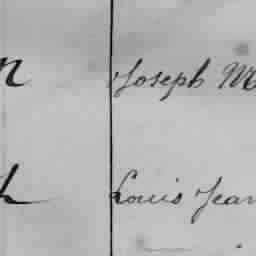 n Joseph M
h Louis Jean